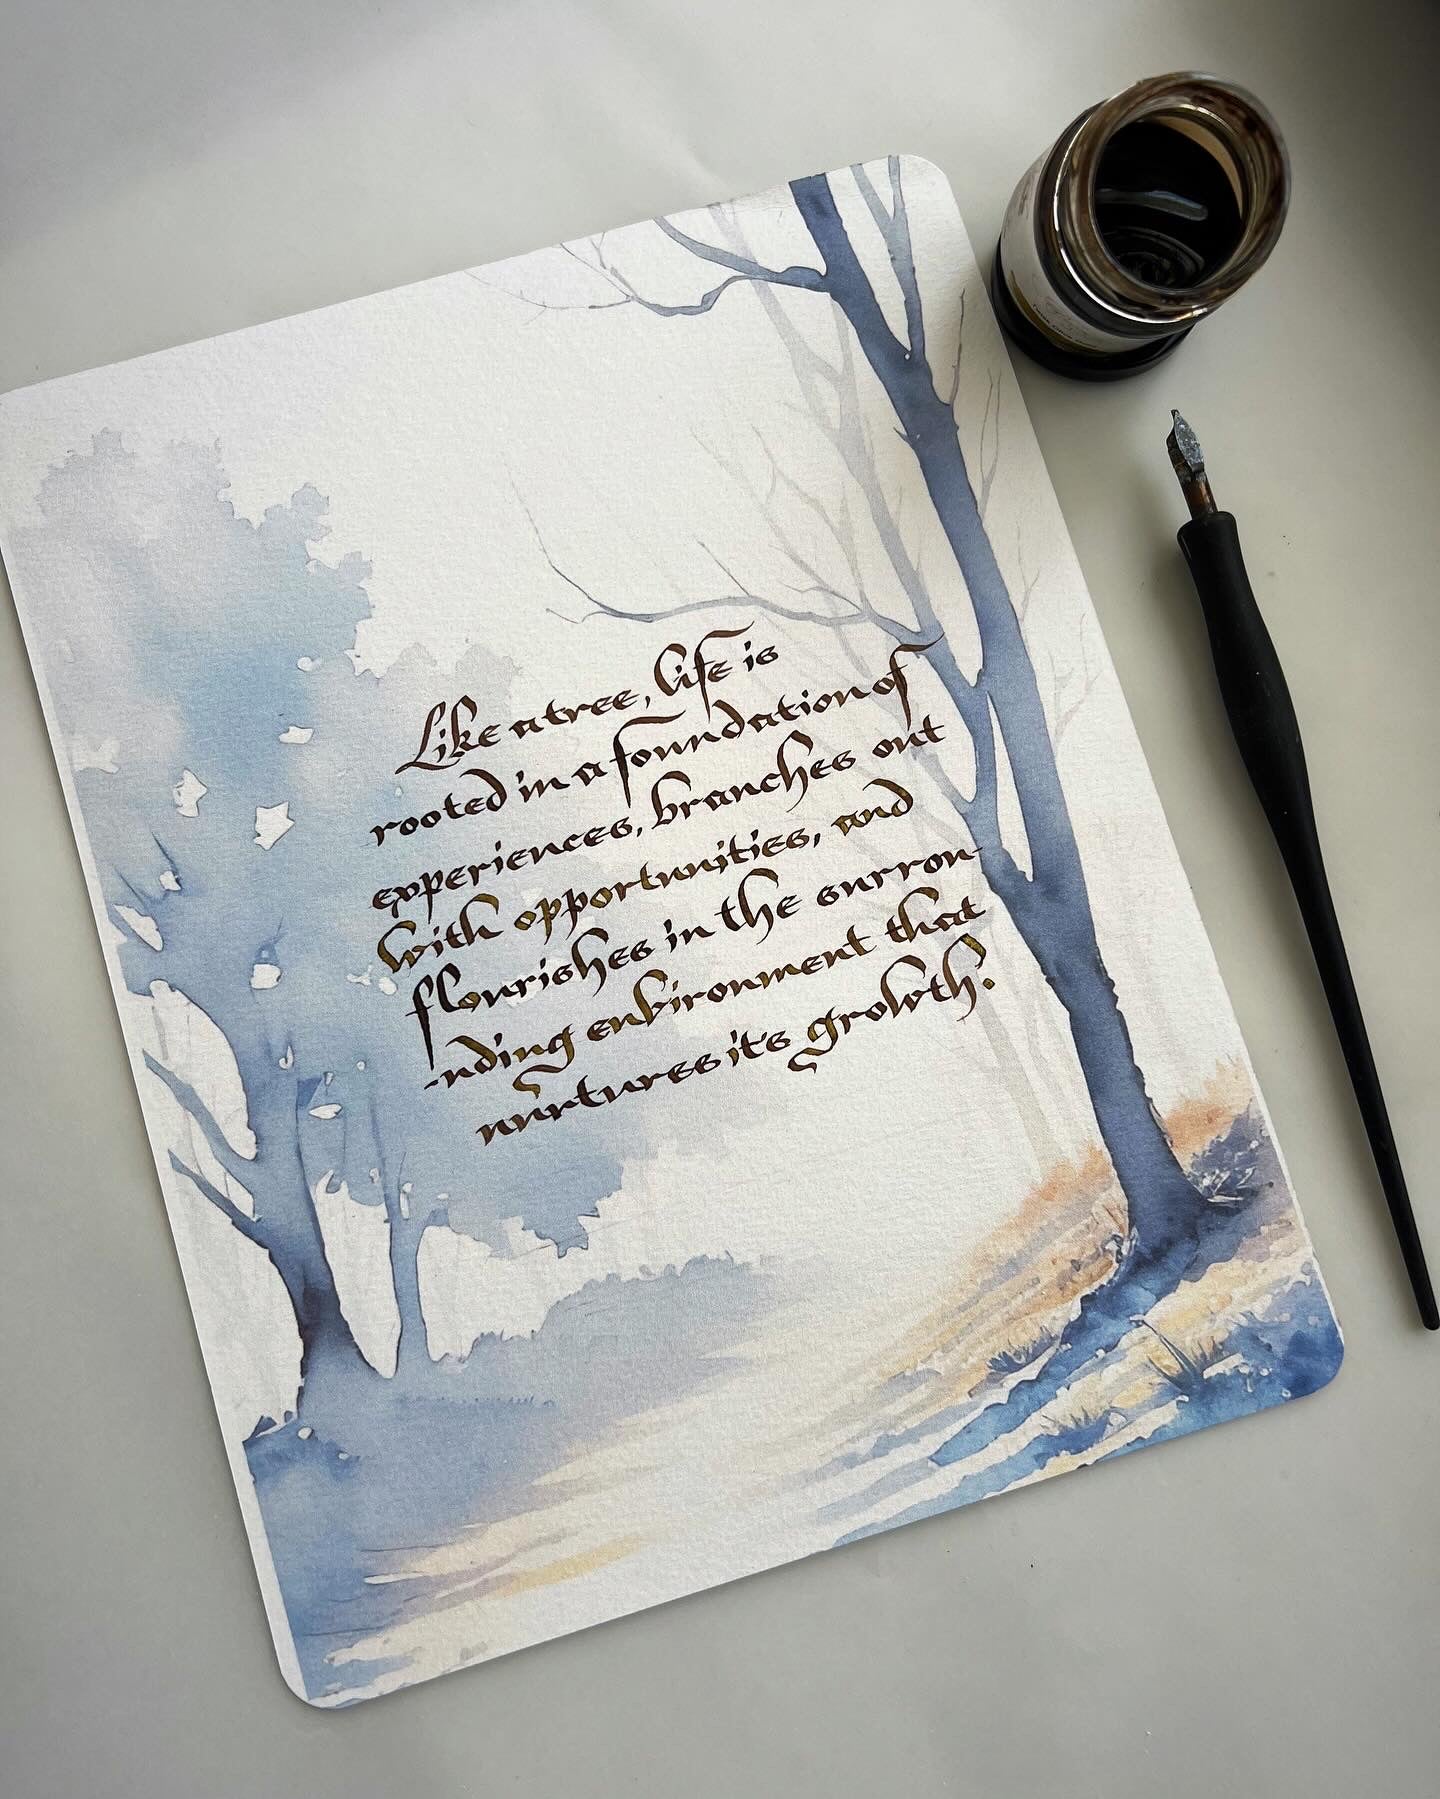 Like a tree, life is
rooted in a foundation of
experiences, branches out
with opportunities, and
flourishes in the surrou-
-nding environment that
nurtures it's growth.